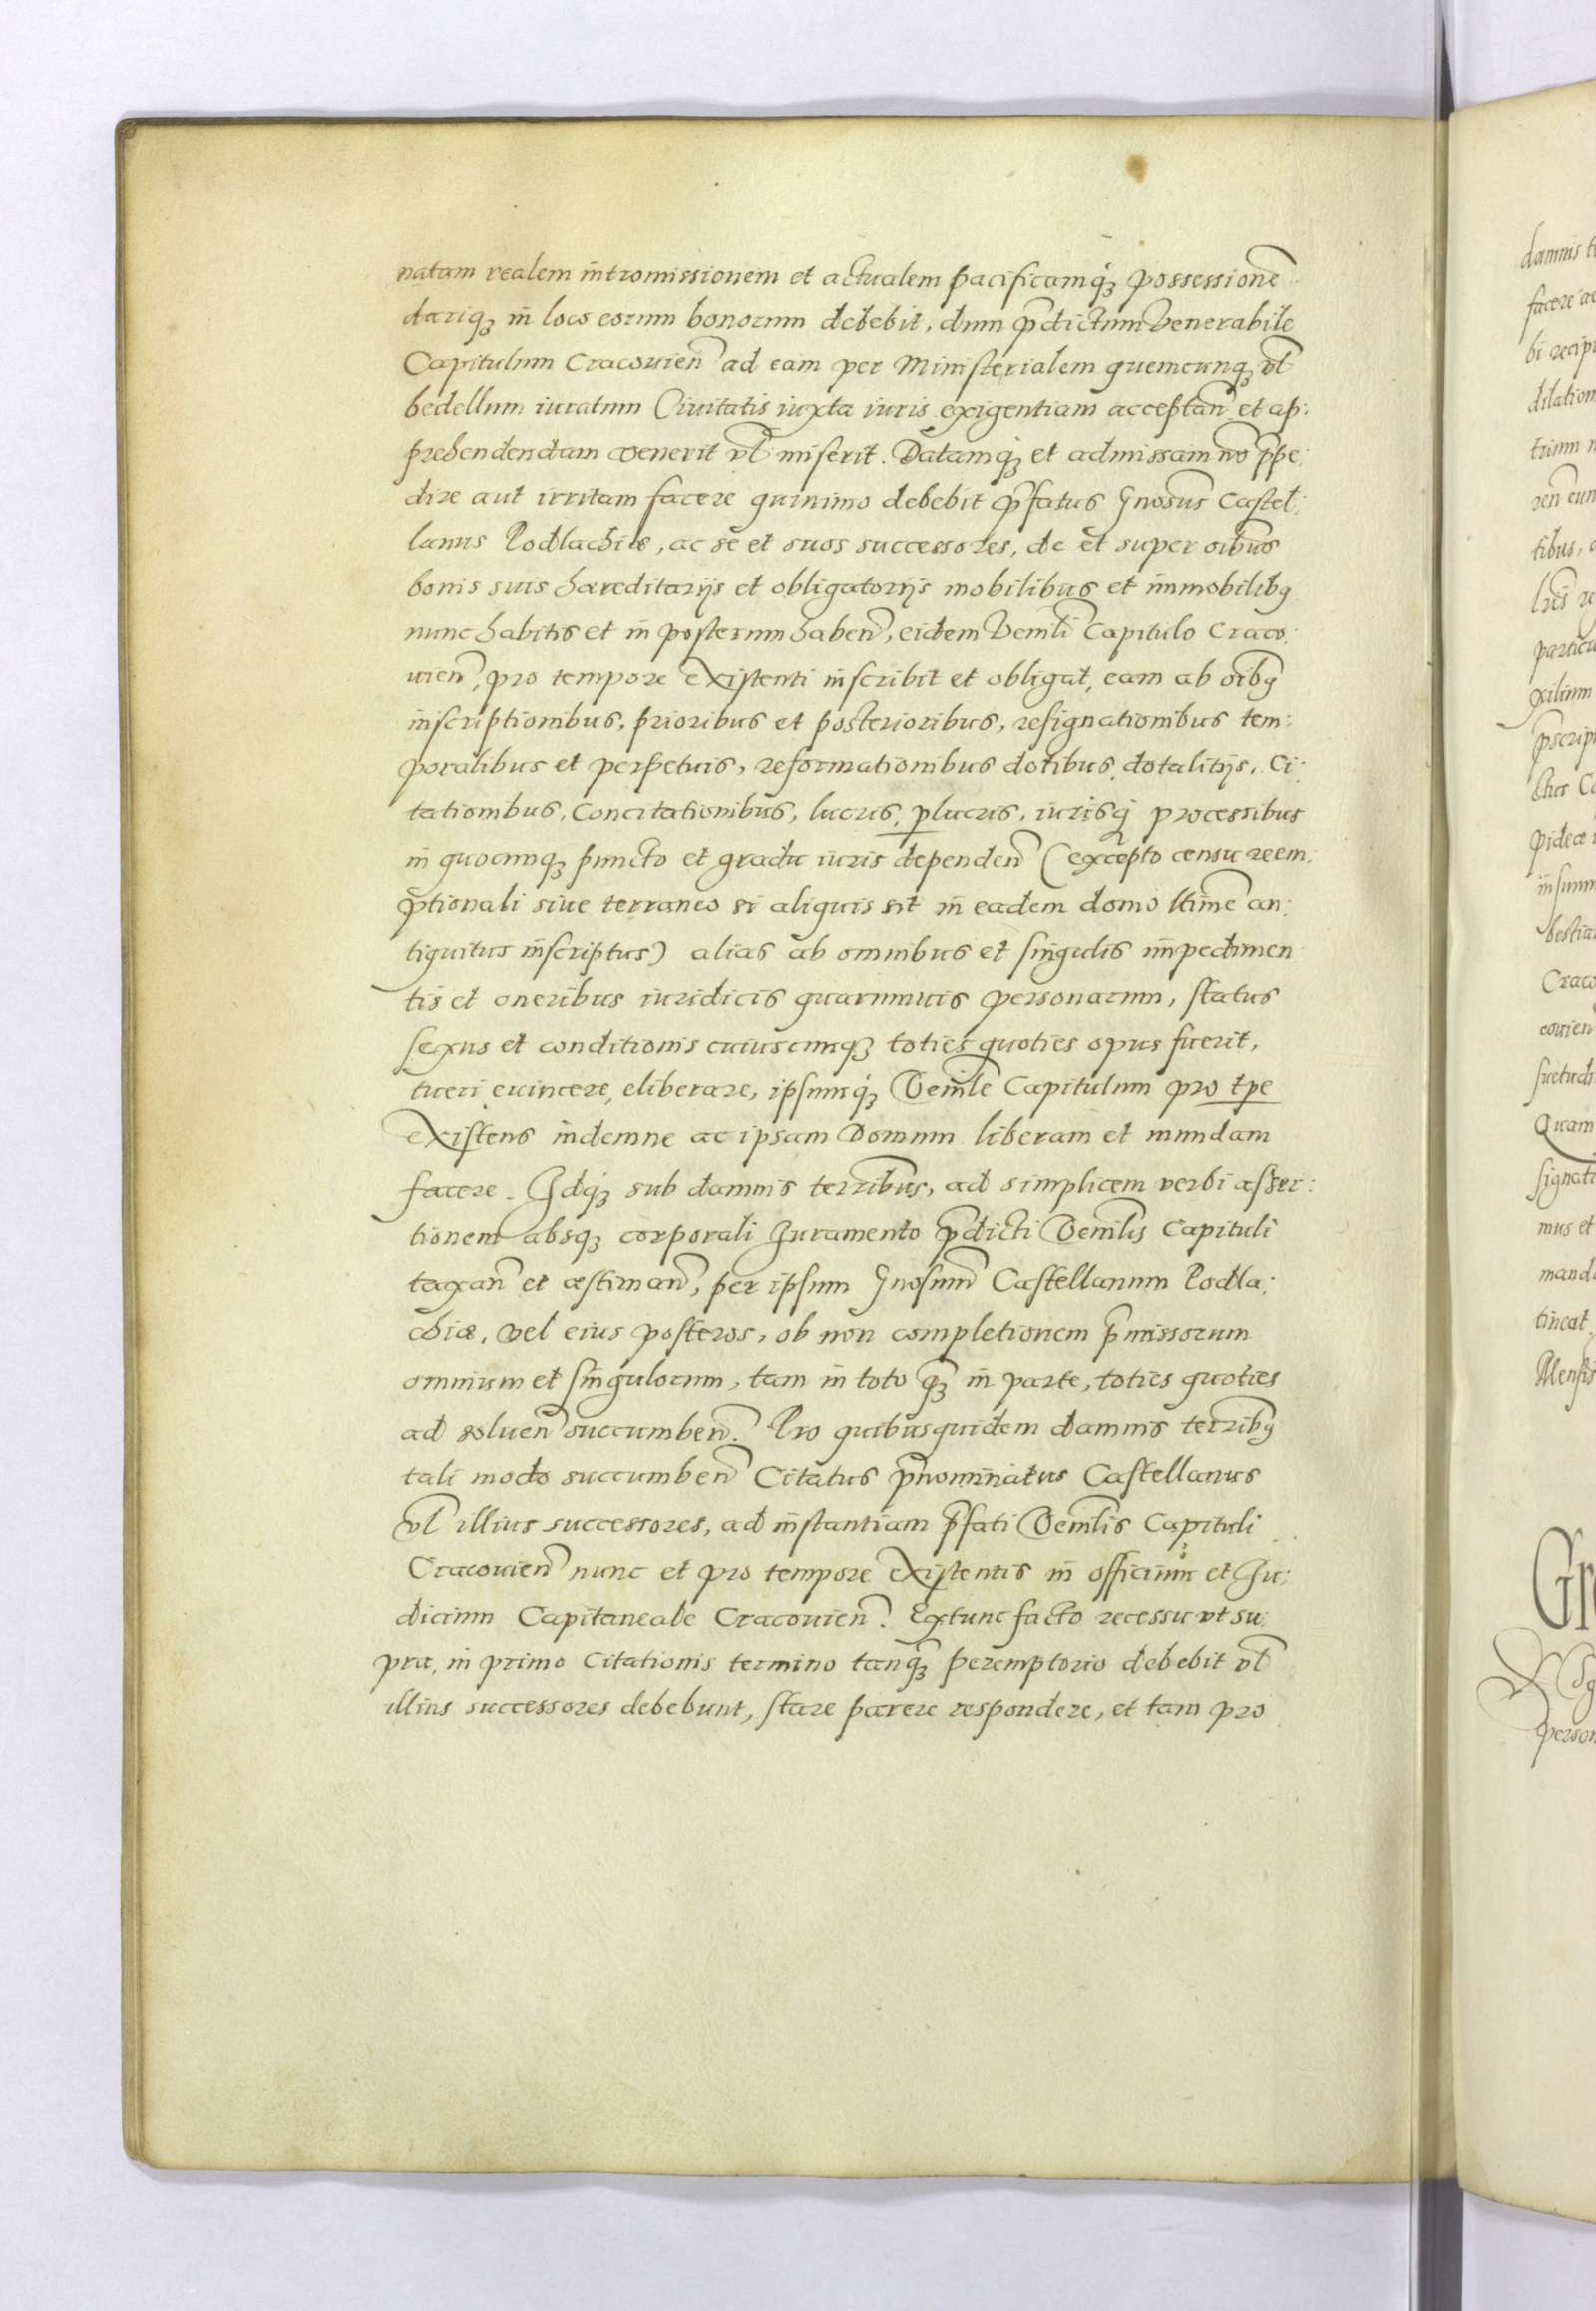 natam realem intromissionem et actualem pacificamq₃ possessionē
dariq₃ in loco eorum bonorum debebit, dum p̄dictum Venerabile
Capitulum Cracouien̄ ad eam per Ministerialem quemcunq₃ vl̄
bedellum iuratum Ciuitatis iuxta iuris exigentiam acceptan̄ et ap:
prehendendam venerit vl̄ miserit. Datamq₃ et admissam nō p̄pe:
dire aut irritam facere quinimo debebit p̄fatus Gnosus Castel:
lanus Podlachiæ, ac se et suos successores, de et super oībus
bonis suis hæreditarijs et obligatorijs mobilibus et immobilibȝ
nunc habitis et in posterum haben̄, eidem Venli Capitulo Craco:
uien̄, pro tempore existenti inscribit et obligat, eam ab oībȝ
inscriptionibus, prioribus et posterioribus, resignationibus tem:
poralibus et perpetuis, reformationibus dotibus, dotalitijs, Ci:
tationibus, Concitationibus, lucris, plucris, iurisq₃ processibus
in quocunq₃ puncto et gradu iuris dependen̄ (excepto censu reem:
ptionali siue terraneo si aliquis sit in eadem domo ltime an:
tiquitus inscriptus) alias ab omnibus et singulis impedimen
tis et oneribus iuridicis quarumuis personarum, status
sexus et conditionis cuiuscunq₃ toties quoties opus fuerit,
tueri, euincere, eliberare, ipsumq₃ Venle Capitulum pro tp̄e
existens indemne ac ipsam Domum liberam et mundam
facere. Idq₃ sub damnis terribus, ad simplicem verbi asser:
tionem absq₃ corporali Juramento p̄dicti Venlis Capituli
taxan̄ et æstiman̄, per ipsum Gnosum Castellanum Podla:
chiæ, vel eius posteros, ob non completionem p̄missorum
omnium et singulorum, tam in toto q̄₃ in parte, toties quoties
ad soluen̄ succumben̄. Pro quibusquidem damnis terribȝ
tali modo succumben̄ Citatus p̄nominatus Castellanus
vl̄ illius successores, ad instantiam p̄fati Venlis Capituli
Cracouien̄ nunc et pro tempore existentis in officium et Ju:
dicium Capitaneale Cracouien̄. Extunc facto recessu vt su
pra, in primo Citationis termino tanq₃ peremptorio debebit vl̄
illius successores debebunt, stare parere respondere, et tam pro
damnis
bi
tibus,
exilium
Craco
Quam
mus et
tineat
Gr